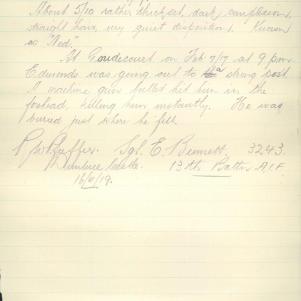 About 5/10 rather thickset, dark complexion,
straight hair, very quiet disposition. Known
as "Ned".
At Goudecourt on Feb 7/17 at 9 pm
Edmunds was going out to a strong post
A machine gun bullet hit him in the
forhead, killing him instantly. He was
buried just where he fell.
Sgt. E. Bennett. 3243.
13th Battn A.I.F.